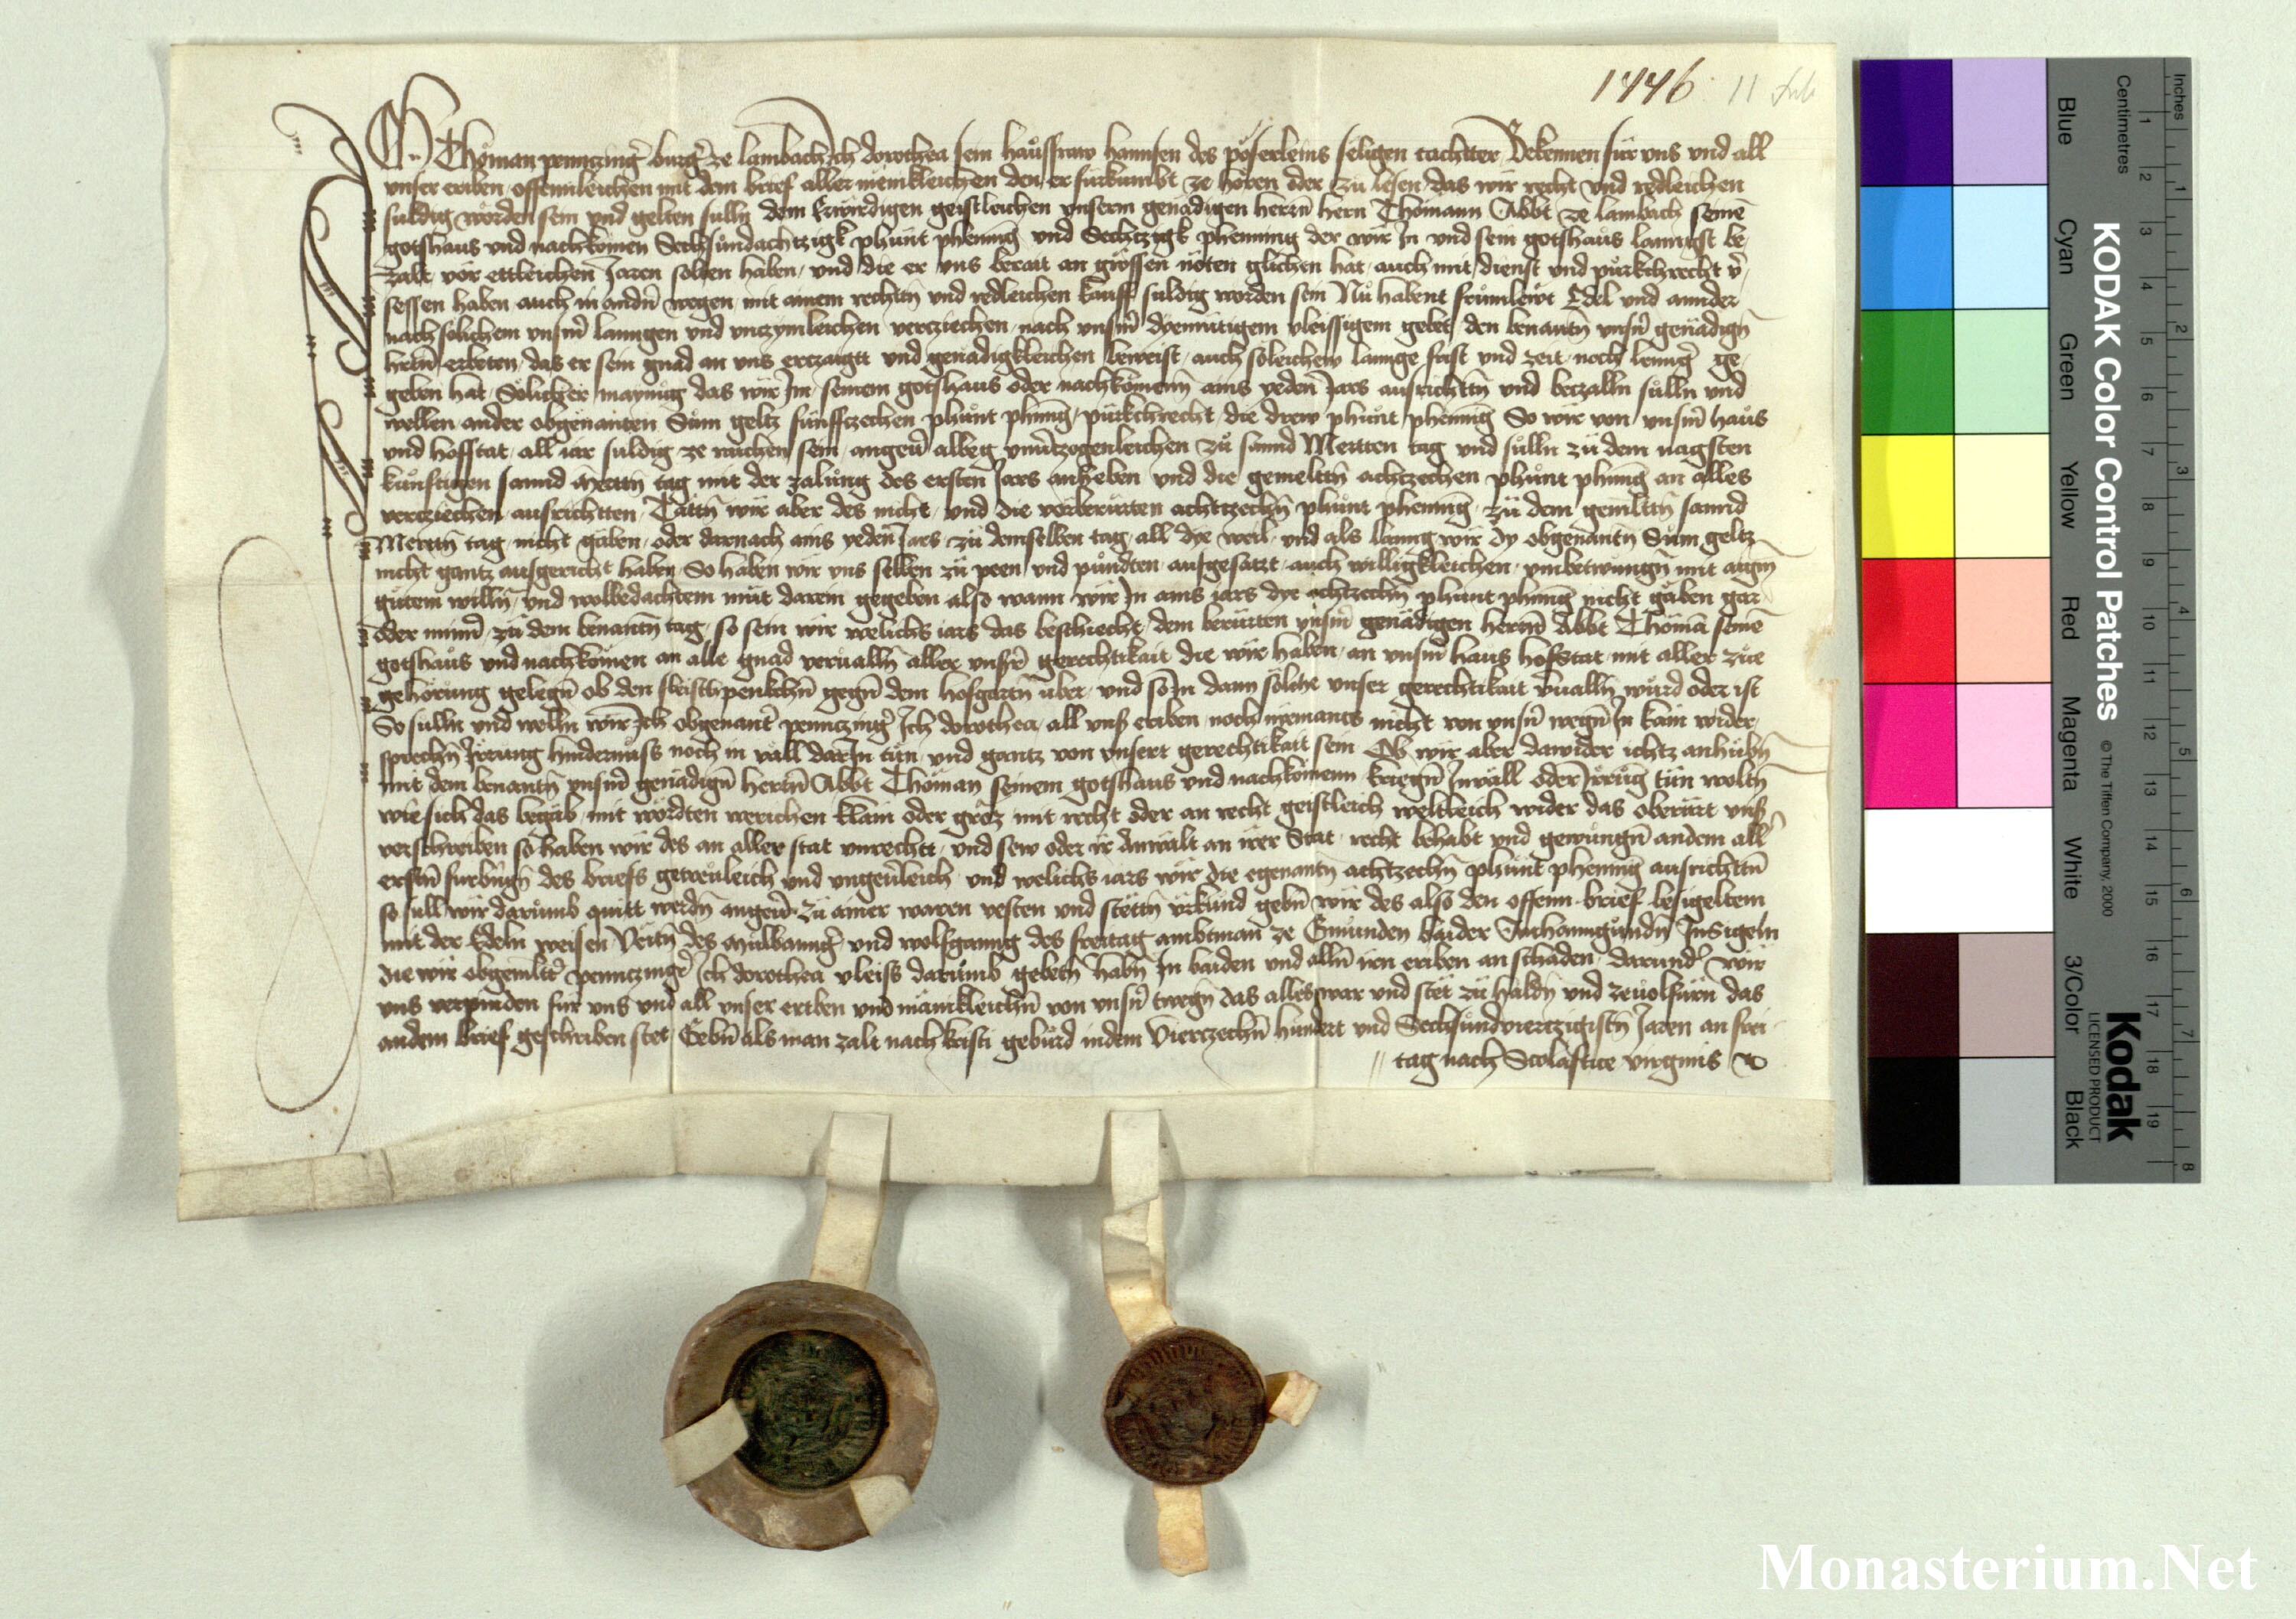 1446 11 Feb
Ich Thoman pennczinḡ burḡ ze lambach Ich dorothea sein haůsfraw hannsen des pöserleins seligen tachtter Bekennen für vns vnd all
vnser eriben offennleichen mit dem brief aller mènikleichen den er fürkumbt ze hören oder zu lesen das wir recht vnd redleichen
schuldig worden sein vnd gelten sulln dem Erwirdigen geistleichen vnserm genädigen herrn hern Thomann Abbt ze lambach seinē
gotshaus vnd nachkömen Sechsůndachtzigk phünt phening vnd Sechtzigk phenning der wir In vnd sein gotshaůs lanngst be
zalt vör ettleichen Jaren solten haben und die er vns berait an grössen nöten glichen hat auch mit dienst vnd půrkchrecht v̄
sessen haben auch in andn̄ wegen mit ainem rechtn̄ vnd redleichen kauff suldig worden sein Nů habent frümlewt Edel vnd annder
nach solichem vnsm̄ lanngen vnd vnczymleichen verczichen nach vnsm̄ dyemütigem vleissigem gebet den benantn̄ vnsn̄ genädign̄
herrn̄ erbeten das er sein gnad an vns erczaigtt vnd genädigkleichen beweist auch soleichew lannge frist vnd zeit noch lenngr̄ ge
geben hat Solicher maynůg das wir Im seinem gotshaus oder nachkömenn̄ ains yeden Jars ausrichttn̄ vnd beczalln sülln vnd
wellen ander obgenanten Sům geltz fünffzechen phůnt phenīg půrkchrecht die drew phůnt phening So wir von vnsm̄ haůs
vnd hofstat all iar suldig ze raichen sein angeūd albeg vnuerzogenleichen zů sannd Mertten tag vnd sůlln zü dem nagsten
kůnftigen sannd Merttn̄ tag mit der zalůng des ersten Jars anheben vnd die gemeltn̄ achtzechen phůnt phenīg an alles
verczichen ausrichtten Tättn̄ wir aber des nicht vnd die vorberürten achttzechn̄ phůnt phening zü dem gemeltn̄ sannd
Merttn̄ tag nicht gäben oder darnach ains yeden̄ Jars zü demselben tag all dye weil vnd als lanng wir dy obgenantn̄ Sům geltz
nicht gantz ausgericht haben So haben wir vns selben zü peen vnd půndten aufgesatzt auch willigkleichen vmbetwungn̄ mit aign̄
gůtem willn̄ vnd wolbedachtem mut darein gegeben also wann wir In ains jars dye achtzechn̄ phünt phenīg nicht gäben gar
oder minn̄ zü dem benantn̄ tag so sein wir welichs iars das beschiecht dem berürten vnsm̄ genädigen herrn̄ Abbt Thömā seinē
gotshaůs vnd nachkömen an alle gnad veruallm̄ aller vnsrr̄ gerechtikait die wir haben an vnsm̄ haus hofstat mit aller zůe
gehörůng gelegn̄ ob den fleischpenkchn̄ gegn̄ dem hofgartn̄ über vnd so In dann sölhe vnser gerechtikait v̄uallm̄ wurd oder ist
So sulln vnd welln wir Ich obgenantr̄ pennczingr̄ Ich dorothea all vnsr̄ eriben noch nyemants nicht von vnsn̄ wegn̄ In kain wider
sprechn̄ Irrung hindernůss noch in väll dar In tůn vnd gantz von vnserr gerechtikait sein Ob wir aber dawider ichtz anhübn̄
mit dem benantn̄ vnsm̄ genädign̄ herrn̄ Abbt Thöman seinem gotshaus vnd nachkömenn kriegn̄ Inväll oder Irrūg tün woltn̄
wie sich das begäb mit wördten werichen klain oder gröz mit recht oder an recht geistleich weltleich wider das oberürt vnsr̄
verschreiben so haben wir des an aller stat vnrechtt vnd sew oder ir Anwält an irer Stat recht behabt vnd gewůngn̄ andem allr̄
erstn̄ fürbrīgn̄ des briefs getrewleich vnd vngeūleich vnd welichs iars wir die egenantn̄ achtzechn̄ phůnt phening ausrichttn̄
so sull wir darůmb quitt werdn̄ angeūd zü ainer waren vesten vnd stettn̄ vrkund gebn̄ wir des also den offenn brief besigeltem
mit der Edeln weisen Veitn̄ des Mülbanngr̄ vnd wolfganng des freitag ambtman ze Gmünden baider Anhanngůndn̄ Insigeln
die wir obgemltr̄ pennczingr̄ Ich dorothea vleiss darůmb gebetn̄ habn̄ In baiden vnd alln̄ irn eriben an schaden darundr̄ wir
vns verpinden für vns vnd all vnser eriben vnd mänikleichn̄ von vnsn̄ wegn̄ das alles war vnd stet zü haldn̄ vnd zeuolfürn das
andem brief geschriben stet Gebn̄ als man zalt nach kristi gebůrd indem Vierczechn̄ hundert vnd Sechsůndvierczigistn̄ Jaren an frei
tag nach Scolastice virginis
Inches
Centimetres
Blue Cyan Green Yellow Red Magenta White 3/Color Black
KODAK Color Control Patches
© The Tiffen Company, 2000
Kodak
LICENSED PRODUCT
1 2 3 4 5 6 7 8 9 10 11 12 13 14 15 16 17 18 19
1 2 3 4 5 6 7 8
Monasterium.Net